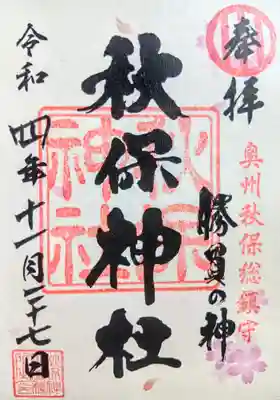 奉拝
奥州秋保総鎮守
勝負の神
秋保神社
秋保神社
令和四年十一月二十七日